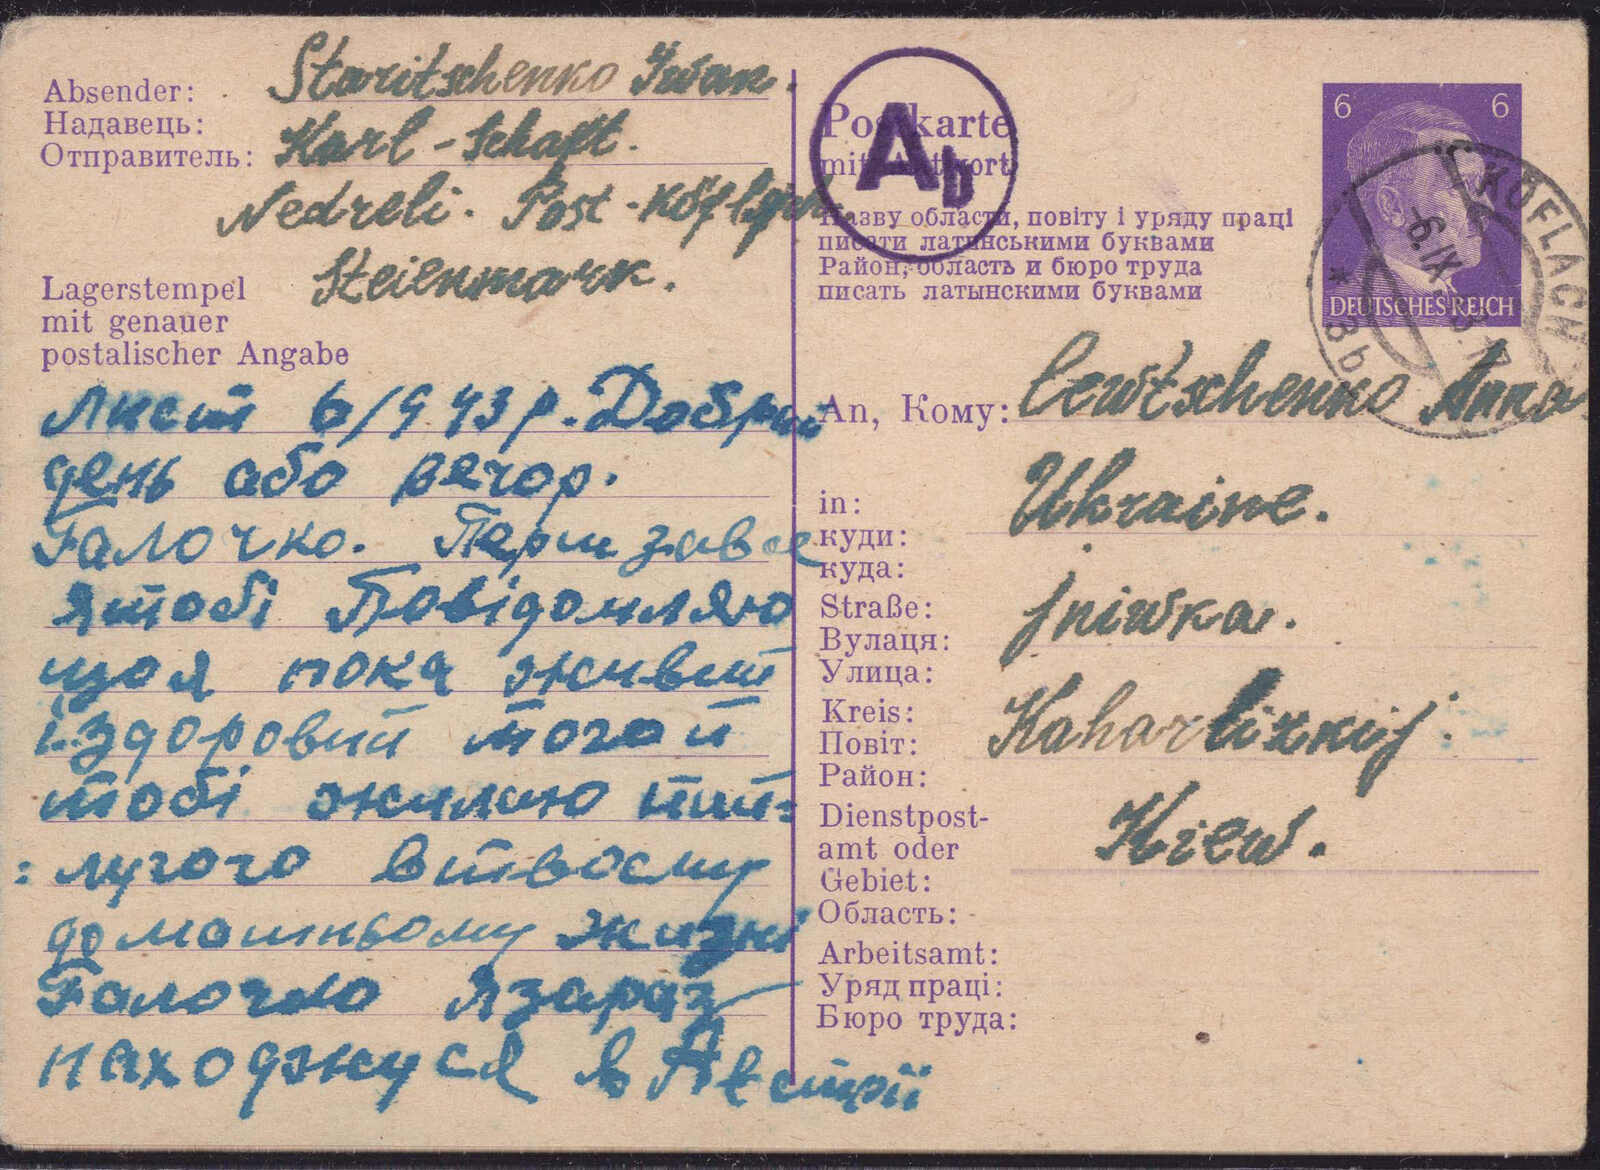 Absender:
Надавець:
Отправитель:
Staritschenko Iwan.
Karl-Schaft.
Nedreli. Post-Köflach.
Steienmark.
Lagerstempel
mit genauer
postalischer Angabe
Лист 6/9 43 р. Добрий
день або вечор.
Галочко. Перш завсе
я тобі Повідомляю
що я пока живий
і здоровий того й
тобі жилаю най=
=лучого в твоєму
домашньому жизні
Галочко я зараз
находжуся в Австрії
Postkarte
mit Antwort
Ab
Назву области, повіту і уряду праці
писати латинськими буквами
Район, область и бюро труда
писать латынскими буквами
6 6
DEUTSCHES REICH
KÖFLACH
-6.IX.
* 8b
An, Кому: Lewtschenko Anna
in:
куди:
куда:
Ukraine.
Straße:
Вулаця:
Улица:
Jniwka.
Kreis:
Повіт:
Район:
Kaharlizkij.
Dienstpost-
amt oder
Gebiet:
Область:
Kiew.
Arbeitsamt:
Уряд праці:
Бюро труда: